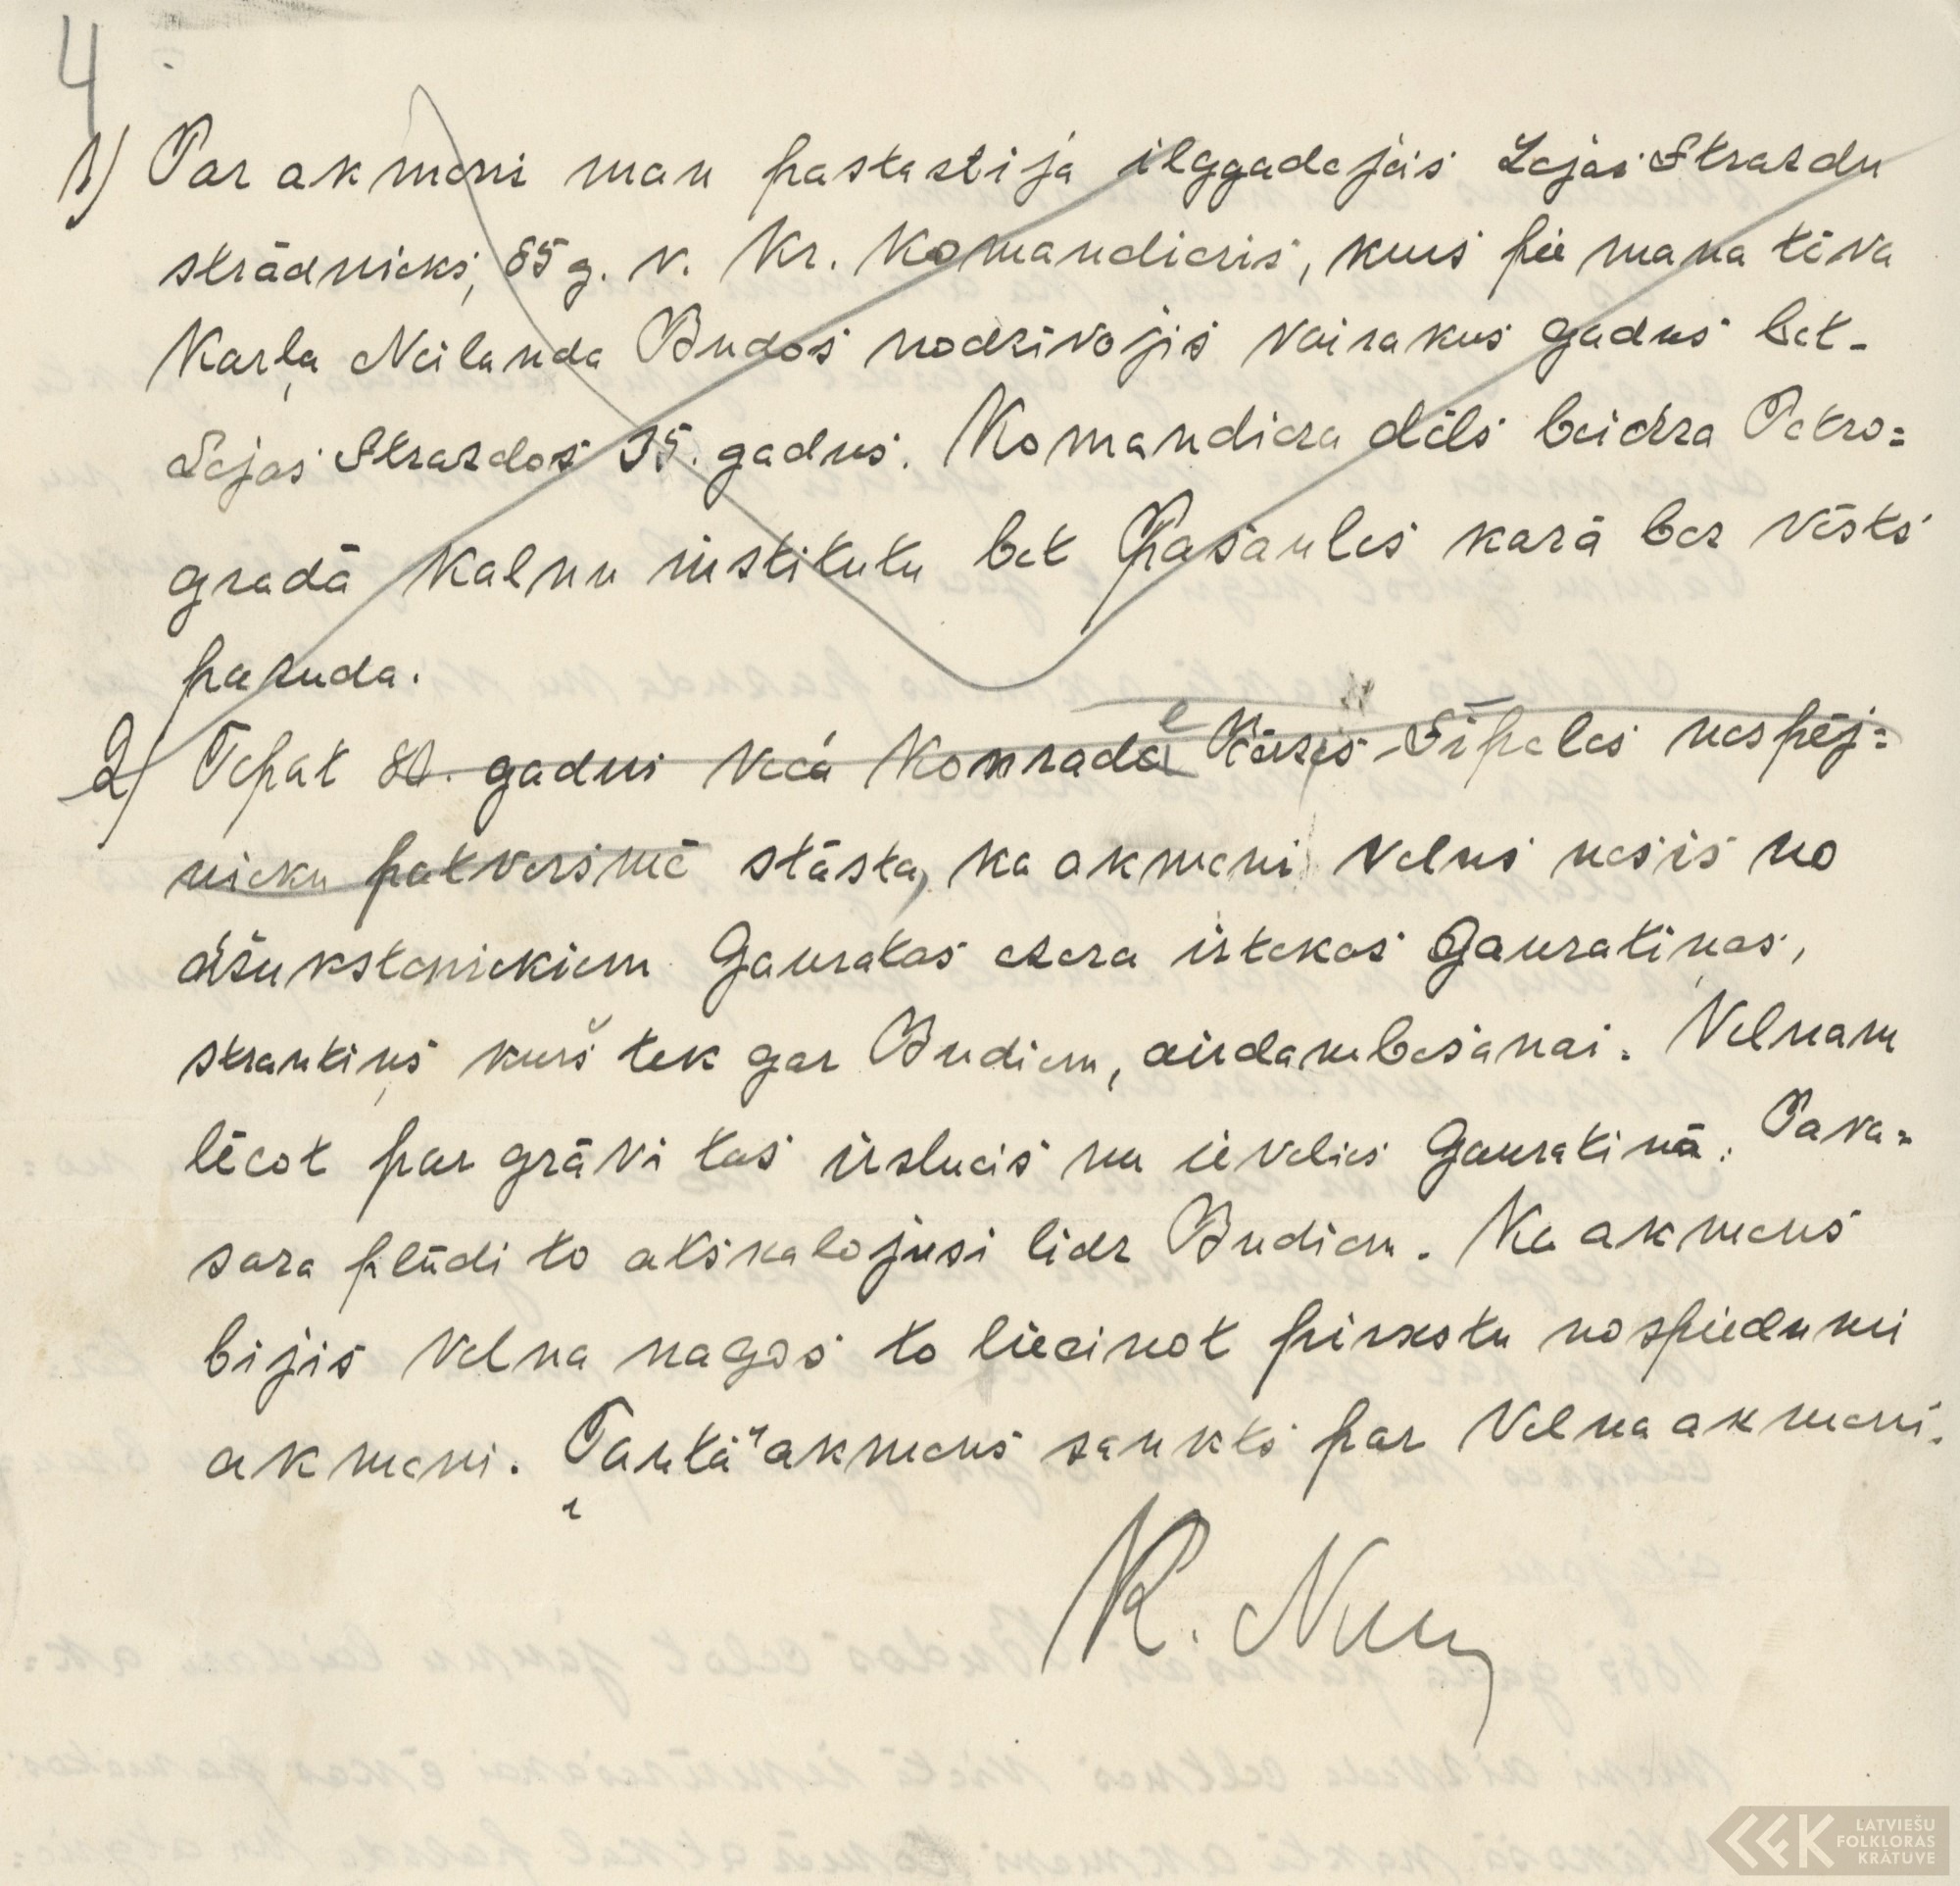 4
1) Par akmeni man pastastija ilggadejais Lejas Strazdu
strādnieks, 85 g. v. Kr. Komandieris, kurs pie mana tēva
Karļa Neilanda Budos nodzivojis vairakus gadus bet-
Lejas Strazdos 35. gadus. Komandiera dēls beidza Petro=
gradā Kalnu institutu bet Pasaules karā bez vēsts
pazuda.
2) Tepat 80. gadni vecā Konrade Sīpeles nespēj=
nieku patversmē stāsta, ka akmeni velns nesis no
džuksteniekiem Gauratas ezera iztekas Gauratiņas,
strautiņš kurš tek gar Budiem, aizdambešanai. Velnam
lēcot par grāvi tas izslucis un ievelies Gauratiņā. Pava=
sara plūdi to atskalojusi lidz Budiem. Ka akmens
bijis Velna nagos to liecinot pirkstu nospiedumi
akmeni. Tautā akmens saukts par Velna akmeni.
K. N
LATVIEŠU
FOLKLORAS
KRĀTUVE